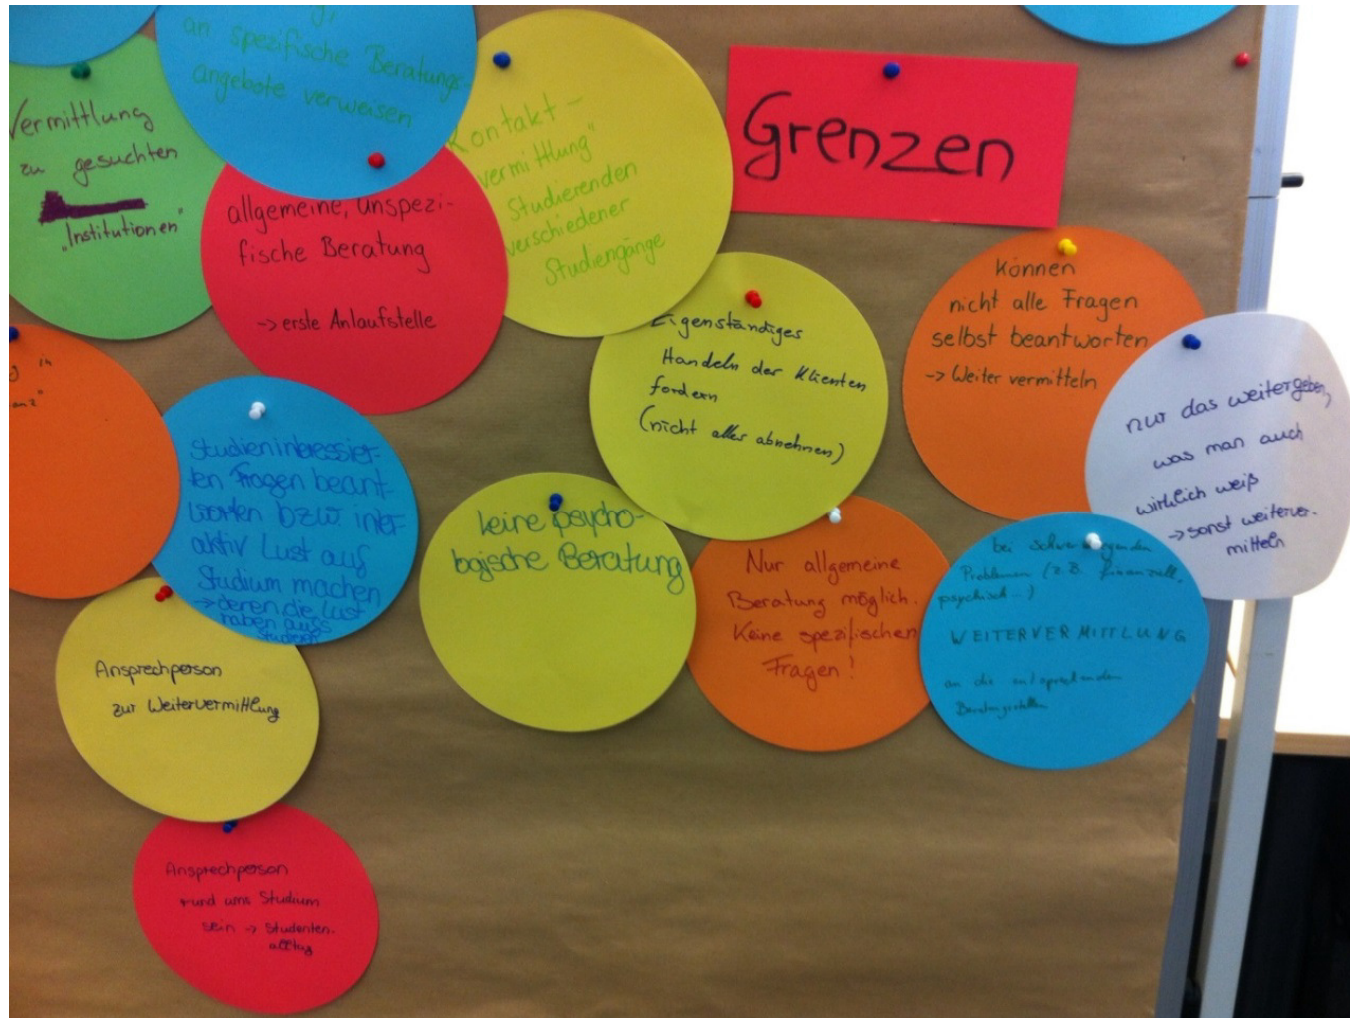 an spezifische Beratungs-
angebote verweisen
Vermittlung
zu gesuchten
"Institutionen"
allgemeine, unspezi-
fische Beratung
-> erste Anlaufstelle
Kontakt -
vermittlung"
Studierenden
verschiedener
Studiengänge
Grenzen
Eigenständiges
Handeln der Klienten
fordern
(nicht alles abnehmen)
Können
nicht alle Fragen
selbst beantworten
-> Weiter vermitteln
nur das weitergeben,
was man auch
wirklich weiß
-> sonst weiterver-
mitteln
Studieninteressier-
ten Fragen beant-
worten bzw. inter-
aktiv Lust auf
Studium machen
-> deren die Lust
haben aufs
Studieren
keine psycho-
logische Beratung
Nur allgemeine
Beratung möglich.
Keine spezifischen
Fragen!
bei schwerwiegenden
Problemen (z.B. finanziell,
psychisch...)
WEITERVERMITTLUNG
an die entsprechenden
Beratungsstellen
Ansprechperson
zur Weitervermittlung
Ansprechperson
rund ums Studium
sein -> Studenten-
alltag